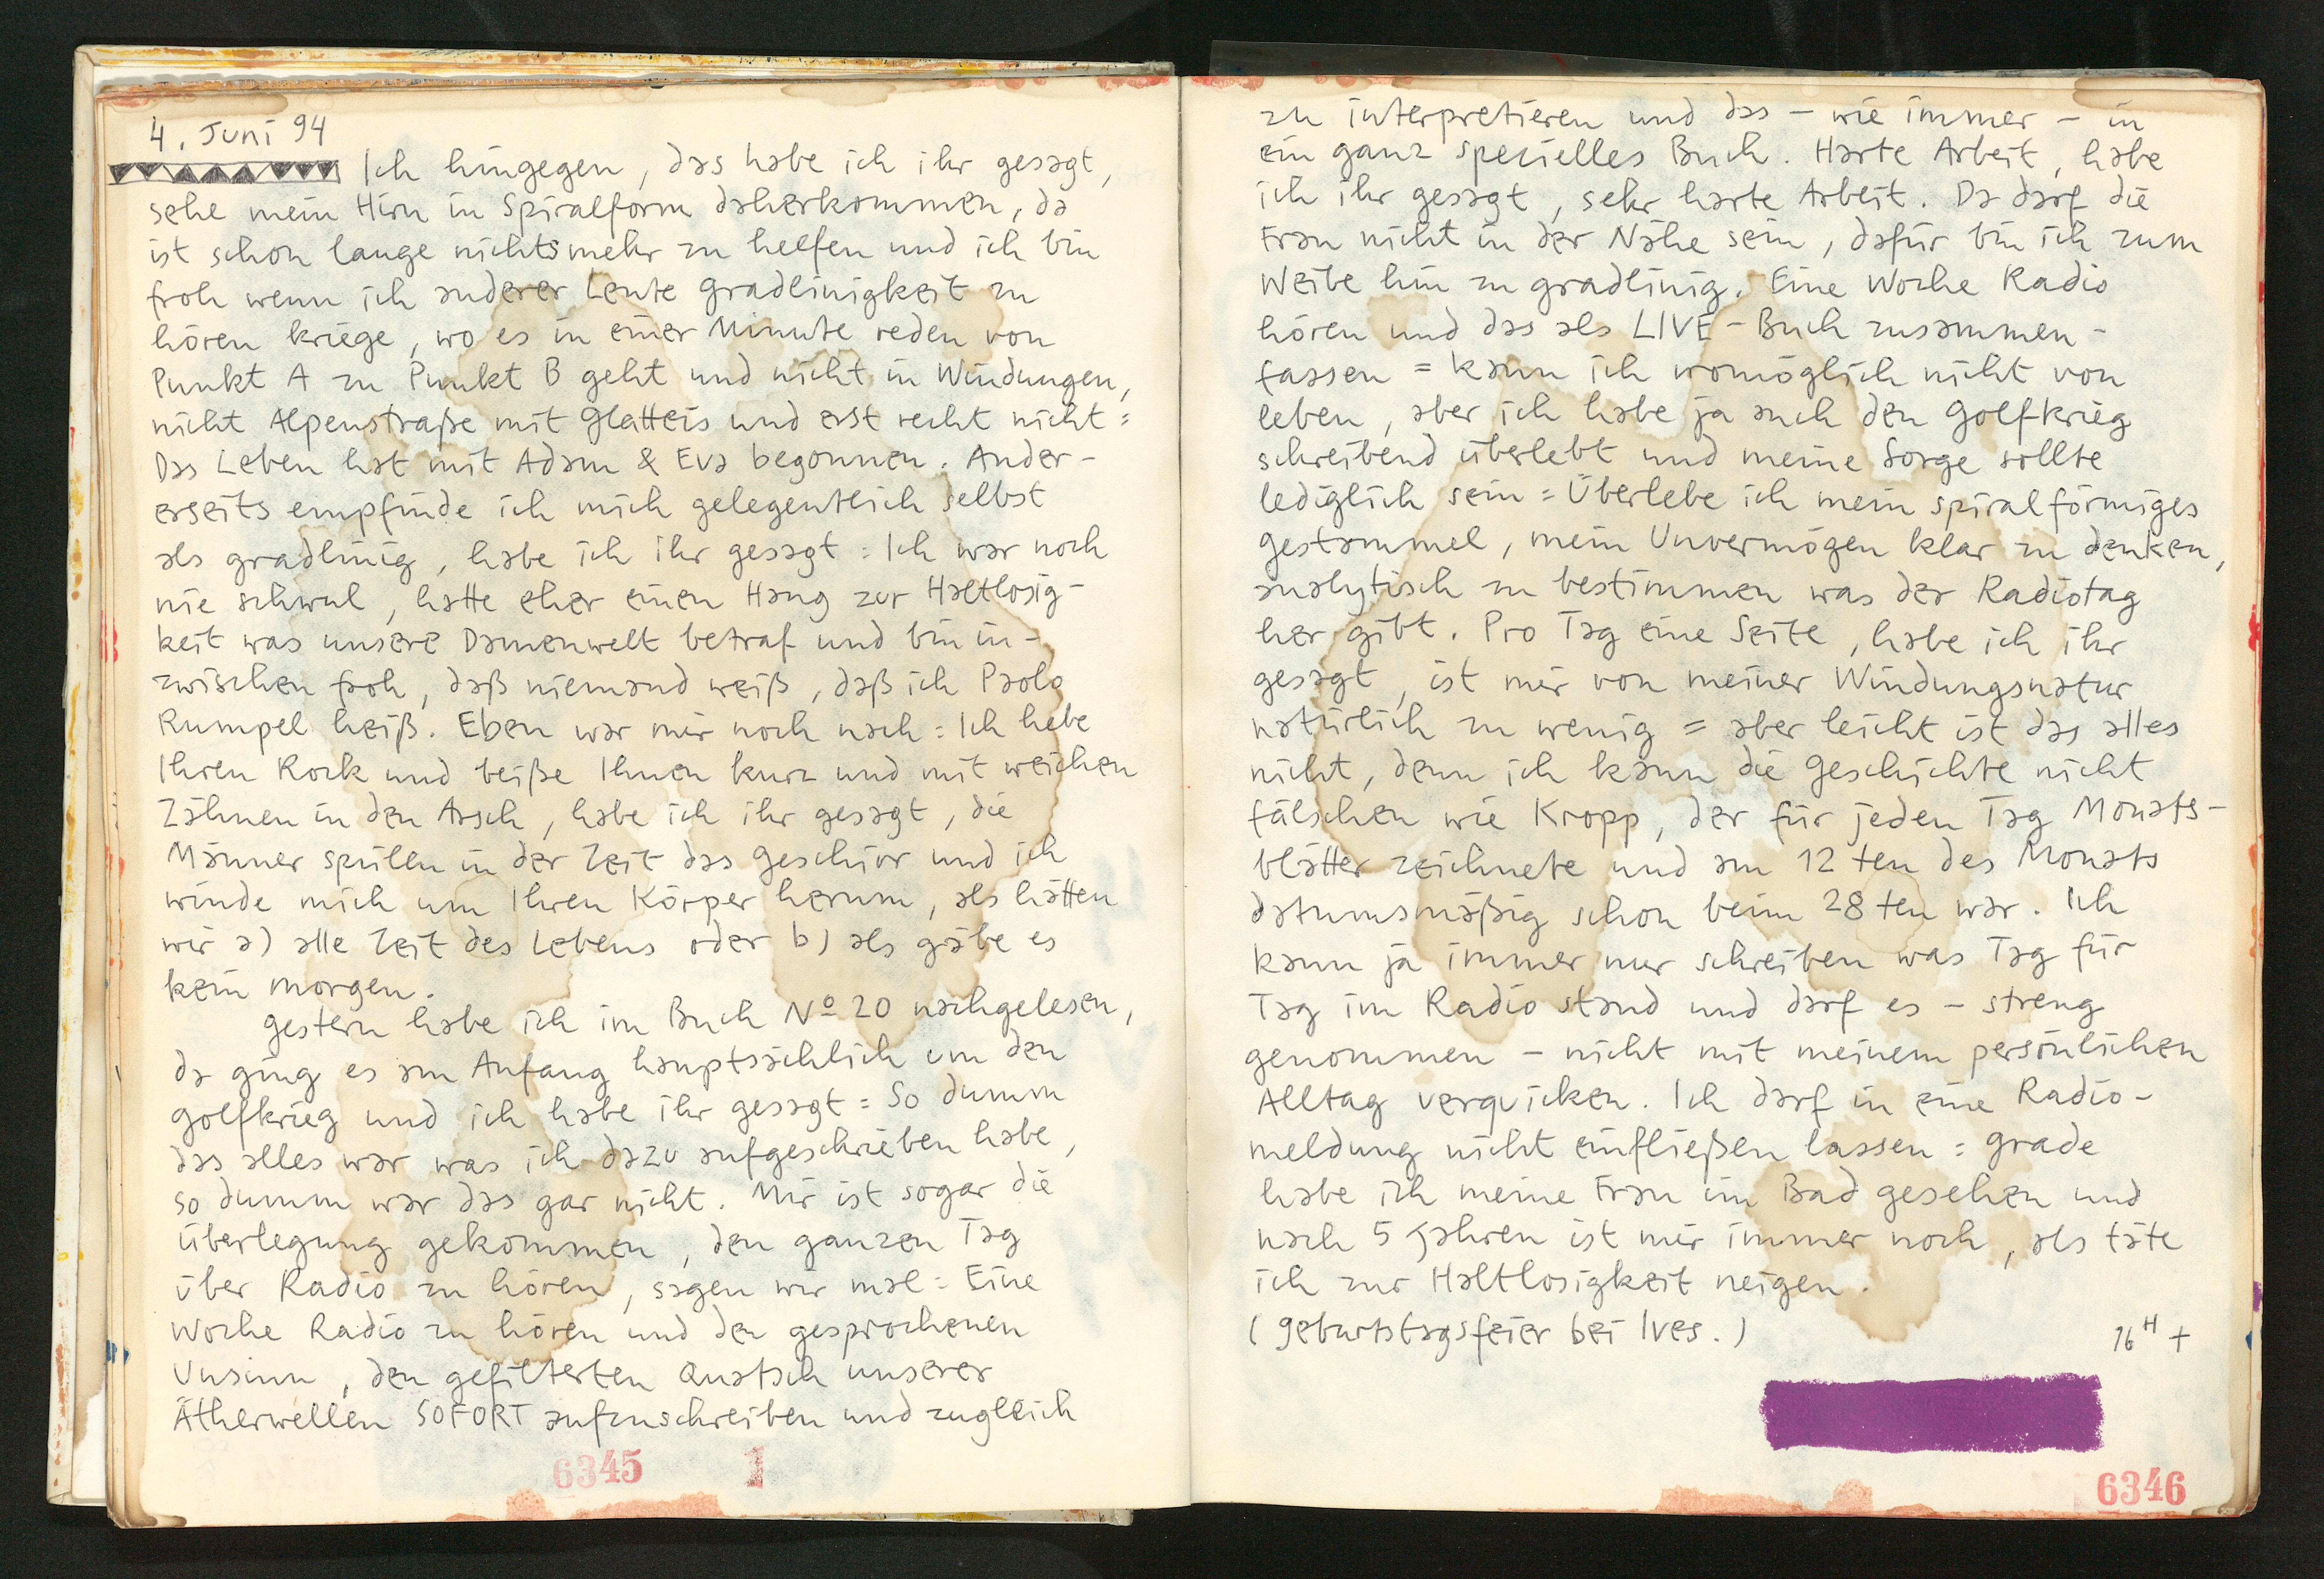 4. Juni 94
Ich hingegen, das habe ich ihr gesagt,
sehe mein Hirn in Spiralform daherkommen, da
ist schon lange nichts mehr zu helfen und ich bin
froh wenn ich anderer Leute Gradlinigkeit zu
hören kriege, wo es in einer Minute reden von
Punkt A zu Punkt B geht und nicht in Windungen,
nicht Alpenstraße mit Glatteis und erst recht nicht =
Das Leben hat mit Adam & Eva begonnen. Ander-
erseits empfinde ich mich gelegentlich selbst
als gradlinig, habe ich ihr gesagt = Ich war noch
nie schwul, hatte eher einen Hang zur Haltlosig-
keit was unsere Damenwelt betraf und bin in-
zwischen froh, daß niemand weiß, daß ich Paolo
Rumpel heiß. Eben war mir noch nach = Ich hebe
Ihren Rock und beiße Ihnen kurz und mit weichen
Zähnen in den Arsch, habe ich ihr gesagt, die
Männer spülen in der Zeit das Geschirr und ich
winde mich um Ihren Körper herum, als hätten
wir a) alle Zeit des Lebens oder b) als gäbe es
kein morgen.
Gestern habe ich im Buch Nº 20 nachgelesen,
da ging es am Anfang hauptsächlich um den
Golfkrieg und ich habe ihr gesagt = So dumm
das alles war was ich dazu aufgeschrieben habe,
so dumm war das gar nicht. Mir ist sogar die
Überlegung gekommen, den ganzen Tag
über Radio zu hören, sagen wir mal = Eine
Woche Radio zu hören und den gesprochenen
Unsinn, den gefilterten Quatsch unserer
Ätherwellen SOFORT aufzuschreiben und zugleich
6345 1
zu interpretieren und das - wie immer - in
ein ganz spezielles Buch. Harte Arbeit, habe
ich ihr gesagt, sehr harte Arbeit. Da darf die
Frau nicht in der Nähe sein, dafür bin ich zum
Weibe hin zu gradlinig. Eine Woche Radio
hören und das als LIVE-Buch zusammen-
fassen = kann ich womöglich nicht von
leben, aber ich habe ja auch den Golfkrieg
schreibend überlebt und meine Sorge sollte
lediglich sein = Überlebe ich mein spiralförmiges
Gestammel, mein Unvermögen klar zu denken,
analytisch zu bestimmen was der Radiotag
her gibt. Pro Tag eine Seite, habe ich ihr
gesagt, ist mir von meiner Windungsnatur
natürlich zu wenig = aber leicht ist das alles
nicht, denn ich kann die Geschichte nicht
fälschen wie Kropp, der für jeden Tag Monats-
blätter zeichnete und am 12 ten des Monats
datumsmäßig schon beim 28 ten war. Ich
kann ja immer nur schreiben was Tag für
Tag im Radio stand und darf es - streng
genommen - nicht mit meinem persönlichen
Alltag verquicken. Ich darf in eine Radio-
meldung nicht einfließen lassen = Grade
habe ich meine Frau im Bad gesehen und
nach 5 Jahren ist mir immer noch, als täte
ich zur Haltlosigkeit neigen.
(Geburtstagsfeier bei Ives.) 16 H +
6346